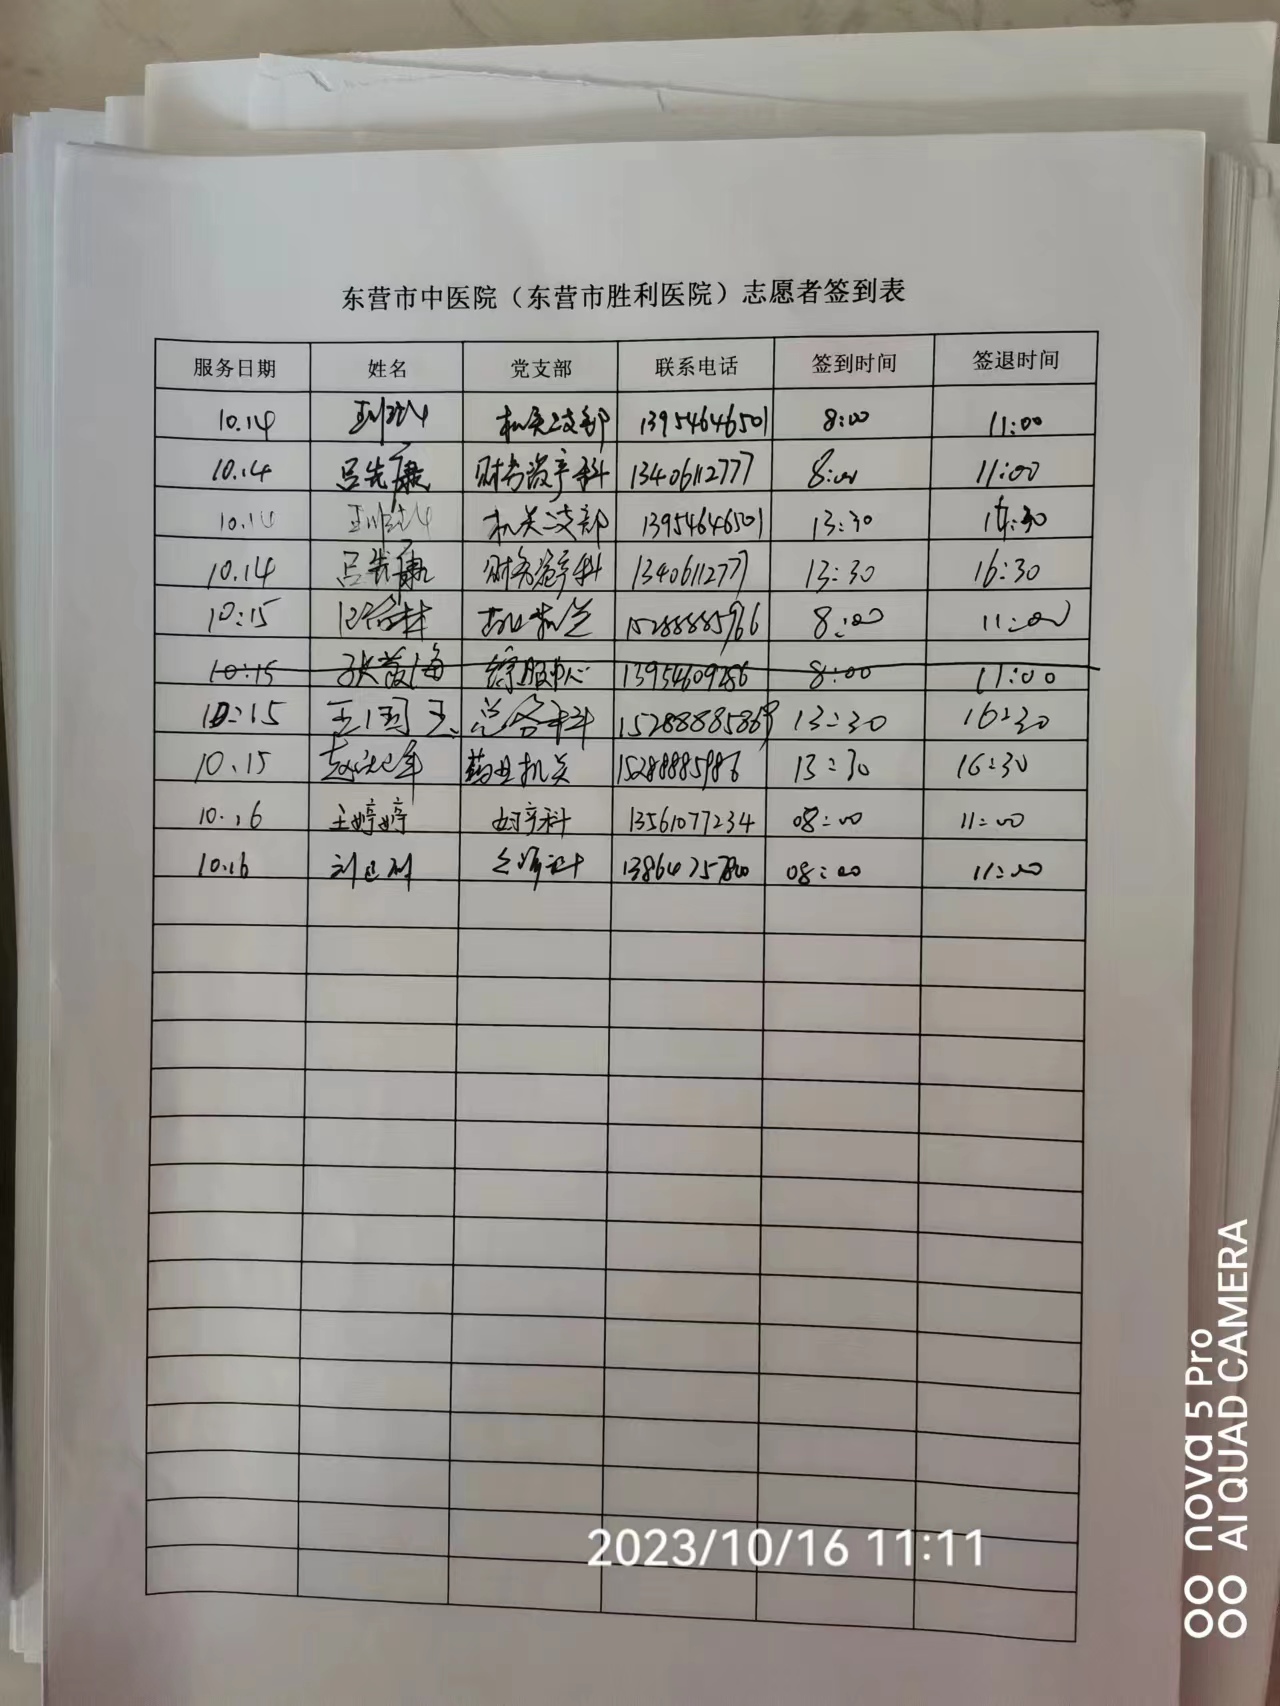 东营市中医院（东营市胜利医院）志愿者签到表
服务日期 姓名 党支部 联系电话 签到时间 签退时间
10.14 机关二支部 13954646501 8:00 11:00
10.14 吕先康 财务资产科 13406112777 8:00 11:00
10.14 机关二支部 13954646501 13:30 16:30
10.14 吕先康 财务资产科 1340611277 13:30 16:30
10:15 15288885966 8:00 11:00
10:15 8:00 11:00
10:15 王国玉 15288885869 13:30 16:30
10.15 药业机关 15288885986 13:30 16:30
10.16 王婷婷 妇产科 13561077234 08:00 11:00
10.16 08:00 11:00
2023/10/16 11:11
nova 5 Pro
AI QUAD CAMERA